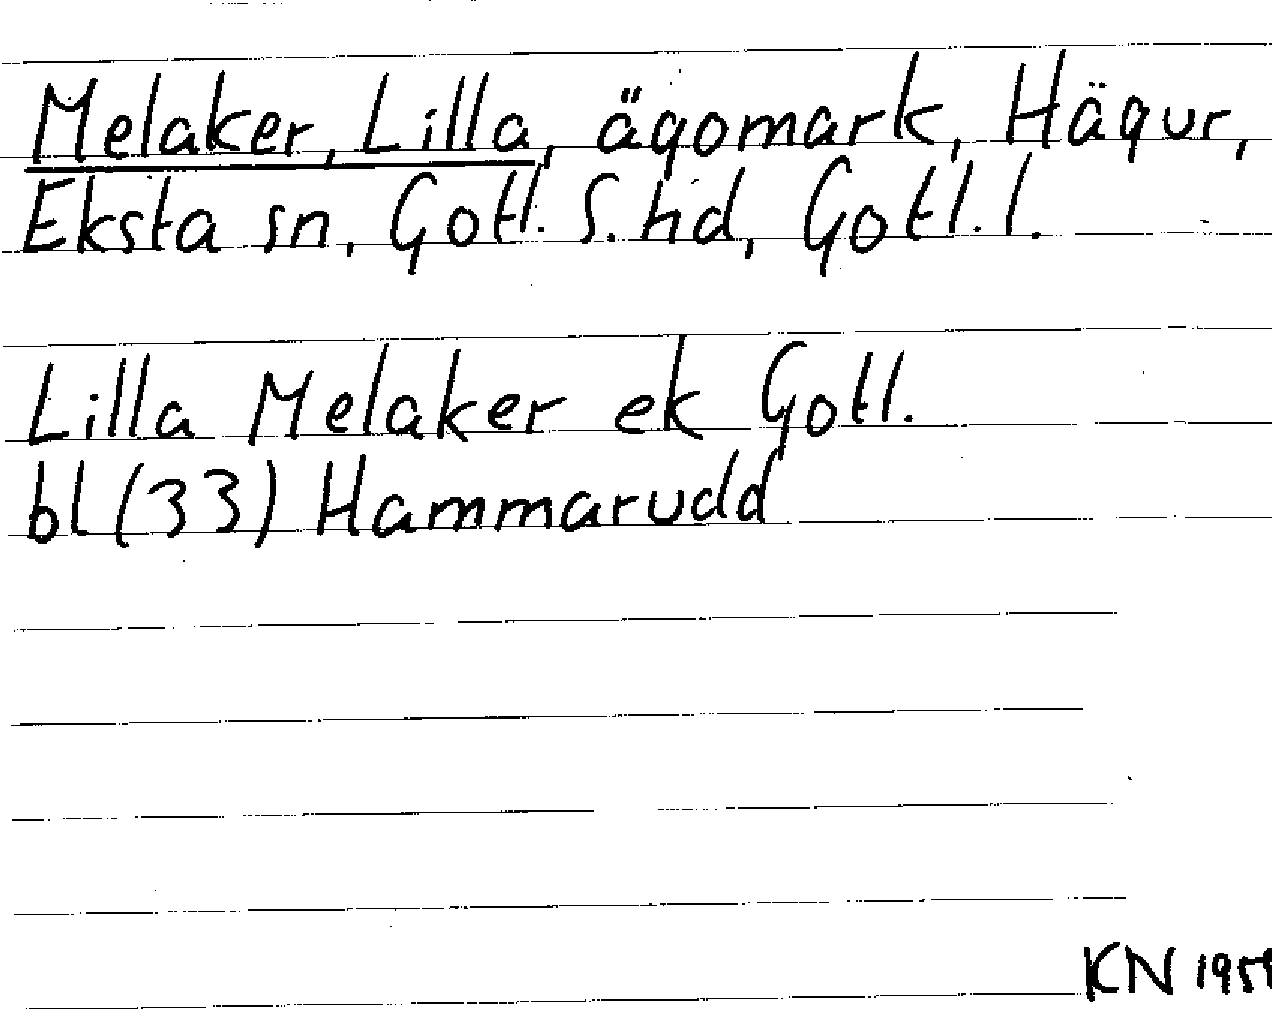 Melaker, Lilla, ägomark, Hägur,
Eksta sn, Gotl. S. hd, Gotl. l.
Lilla Melaker ek Gotl.
bl (33) Hammarudd
KN